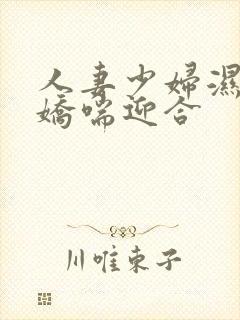 人妻少婦濕
嬌喘迎合
川唯東子